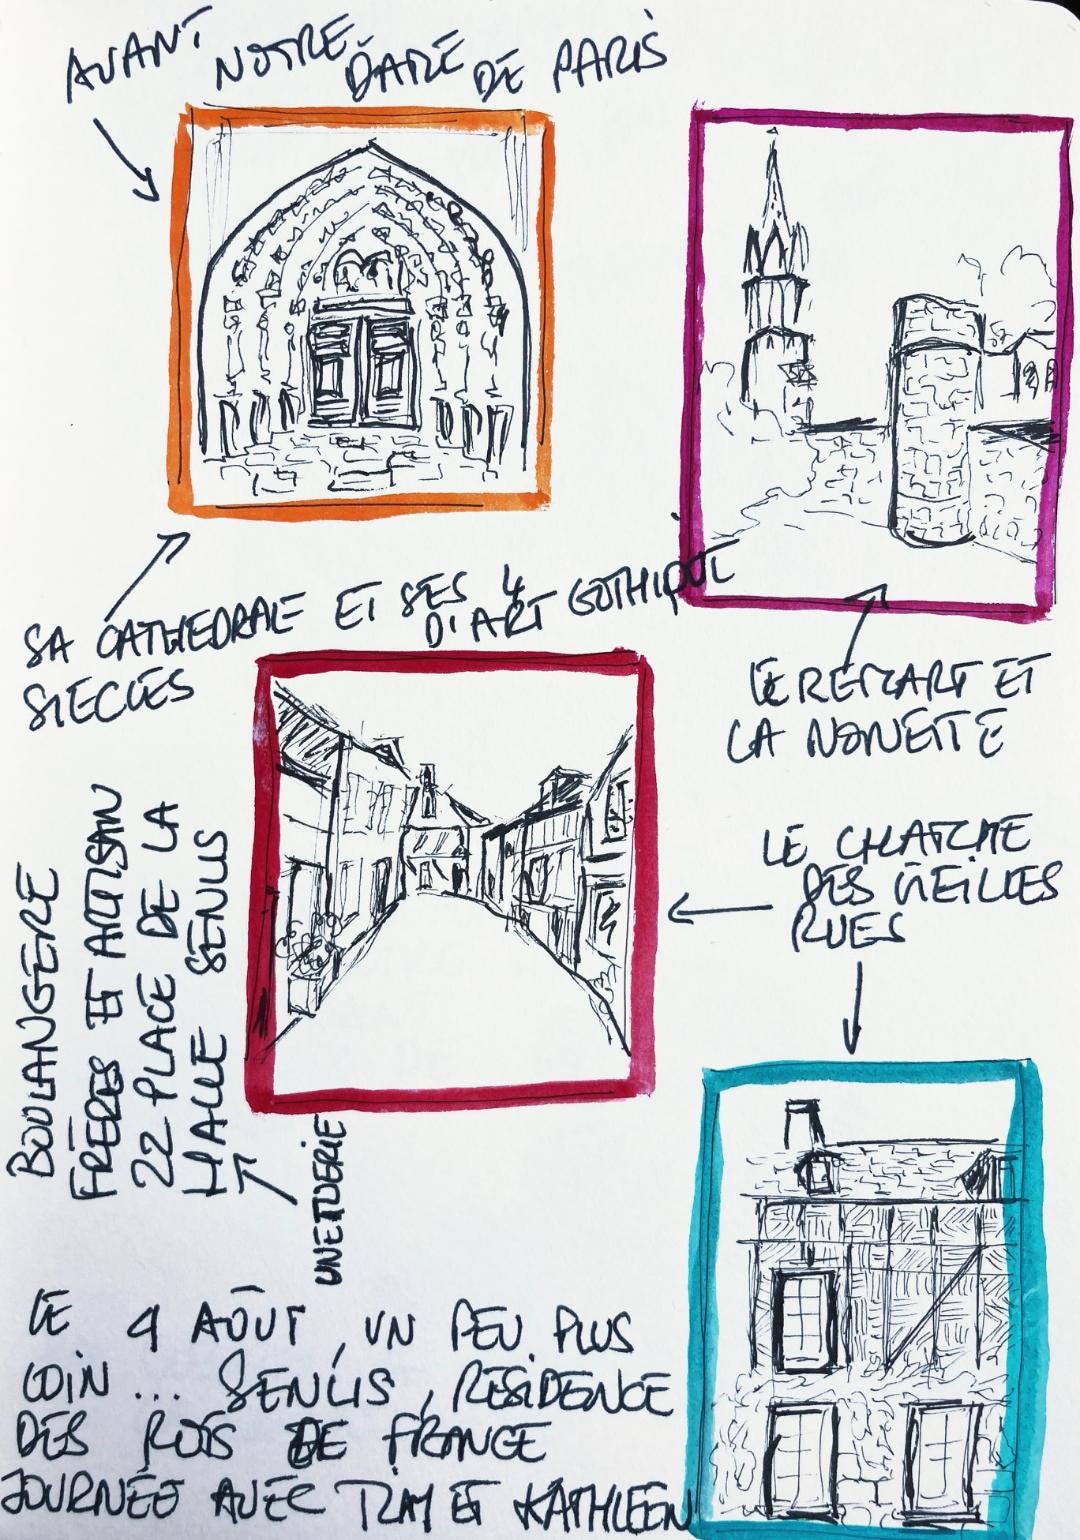 AVANT NOTRE-DAME DE PARIS
SA CATHEDRALE ET SES 4
D'ART GOTHIQUE
SIECLES
LE REMPART ET
LA NONETTE
LE CHARME
DES VIEILLES
RUES
BOULANGERE
FRERES ET ARTISAN
22 PLACE DE LA
HALLE SENLIS
LE 4 AOÛT, UN PEU PLUS
LOIN... SENLIS, RESIDENCE
DES ROIS DE FRANCE
JOURNÉE AVEC ET KATHLEEN